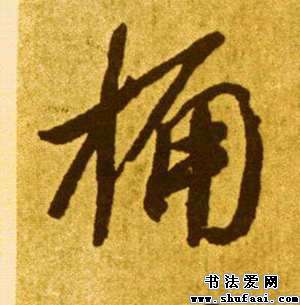 桶
书法爱网
www.shufaai.com